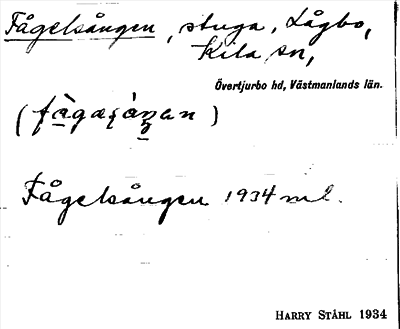 Fågelsången, stuga, Lågbo,
Kila sn,
Övertjurbo hd, Västmanlands län.
Fågelsången 1934 ml.
HARRY STÅHL 1934